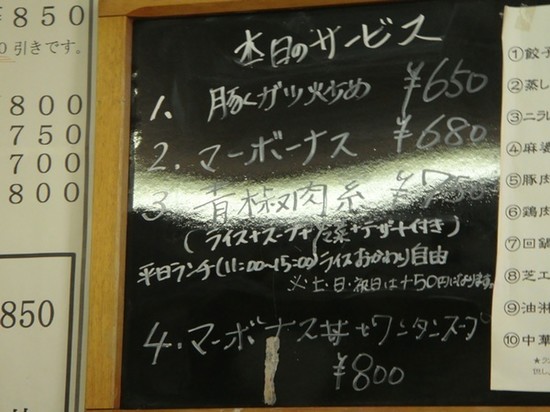 ¥850
0引きです。
¥800
750
700
800
850
本日のサービス
1. 豚ガツ炒め ¥650
2. マーボーナス ¥680
3 青椒肉糸 ¥750
(ライス+スープ+冷菜+デザート付き)
平日ランチ(11:00~15:00)ライスおかわり自由
※土・日・祝日は+50円になります。
4. マーボナス丼とワンタンスープ
¥800
①餃子
②蒸し
③ニラレ
④麻婆
⑤豚肉
⑥鶏肉
⑦回鍋
⑧芝エ
⑨油淋
⑩中華